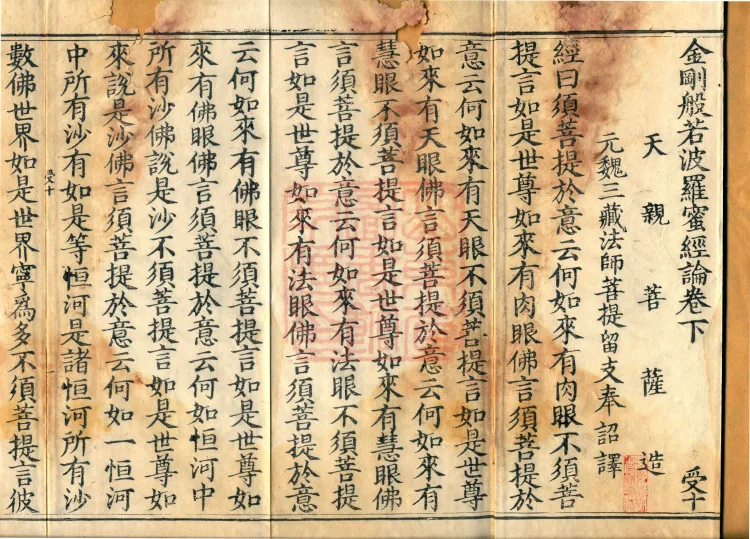 金剛般若波羅蜜經論卷下
受十
天親菩薩造
元魏三藏法師菩提留支奉詔譯
經曰須菩提於意云何如來有肉眼不須菩
提言如是世尊如來有肉眼佛言須菩提於
意云何如來有天眼不須菩提言如是世尊
如來有天眼佛言須菩提於意云何如來有
慧眼不須菩提言如是世尊如來有慧眼佛
言須菩提於意云何如來有法眼不須菩提
言如是世尊如來有法眼佛言須菩提於意
云何如來有佛眼不須菩提言如是世尊如
來有佛眼佛言須菩提於意云何如恒河中
所有沙佛說是沙不須菩提言如是世尊如
來說是沙佛言須菩提於意云何如一恒河
中所有沙有如是等恒河是諸恒河所有沙
受十
數佛世界如是世界寧為多不須菩提言彼